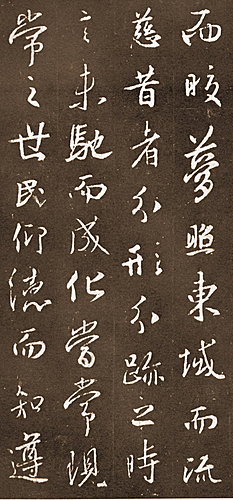 而皎夢照東域而流
慈昔者分形分跡之時
言未馳而成化當常現
常之世民仰德而知遵